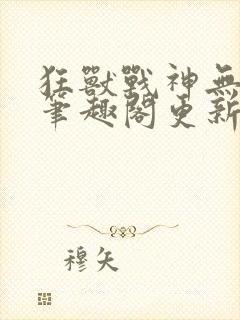 狂獸戰神無
筆趣閣更新
穆矢